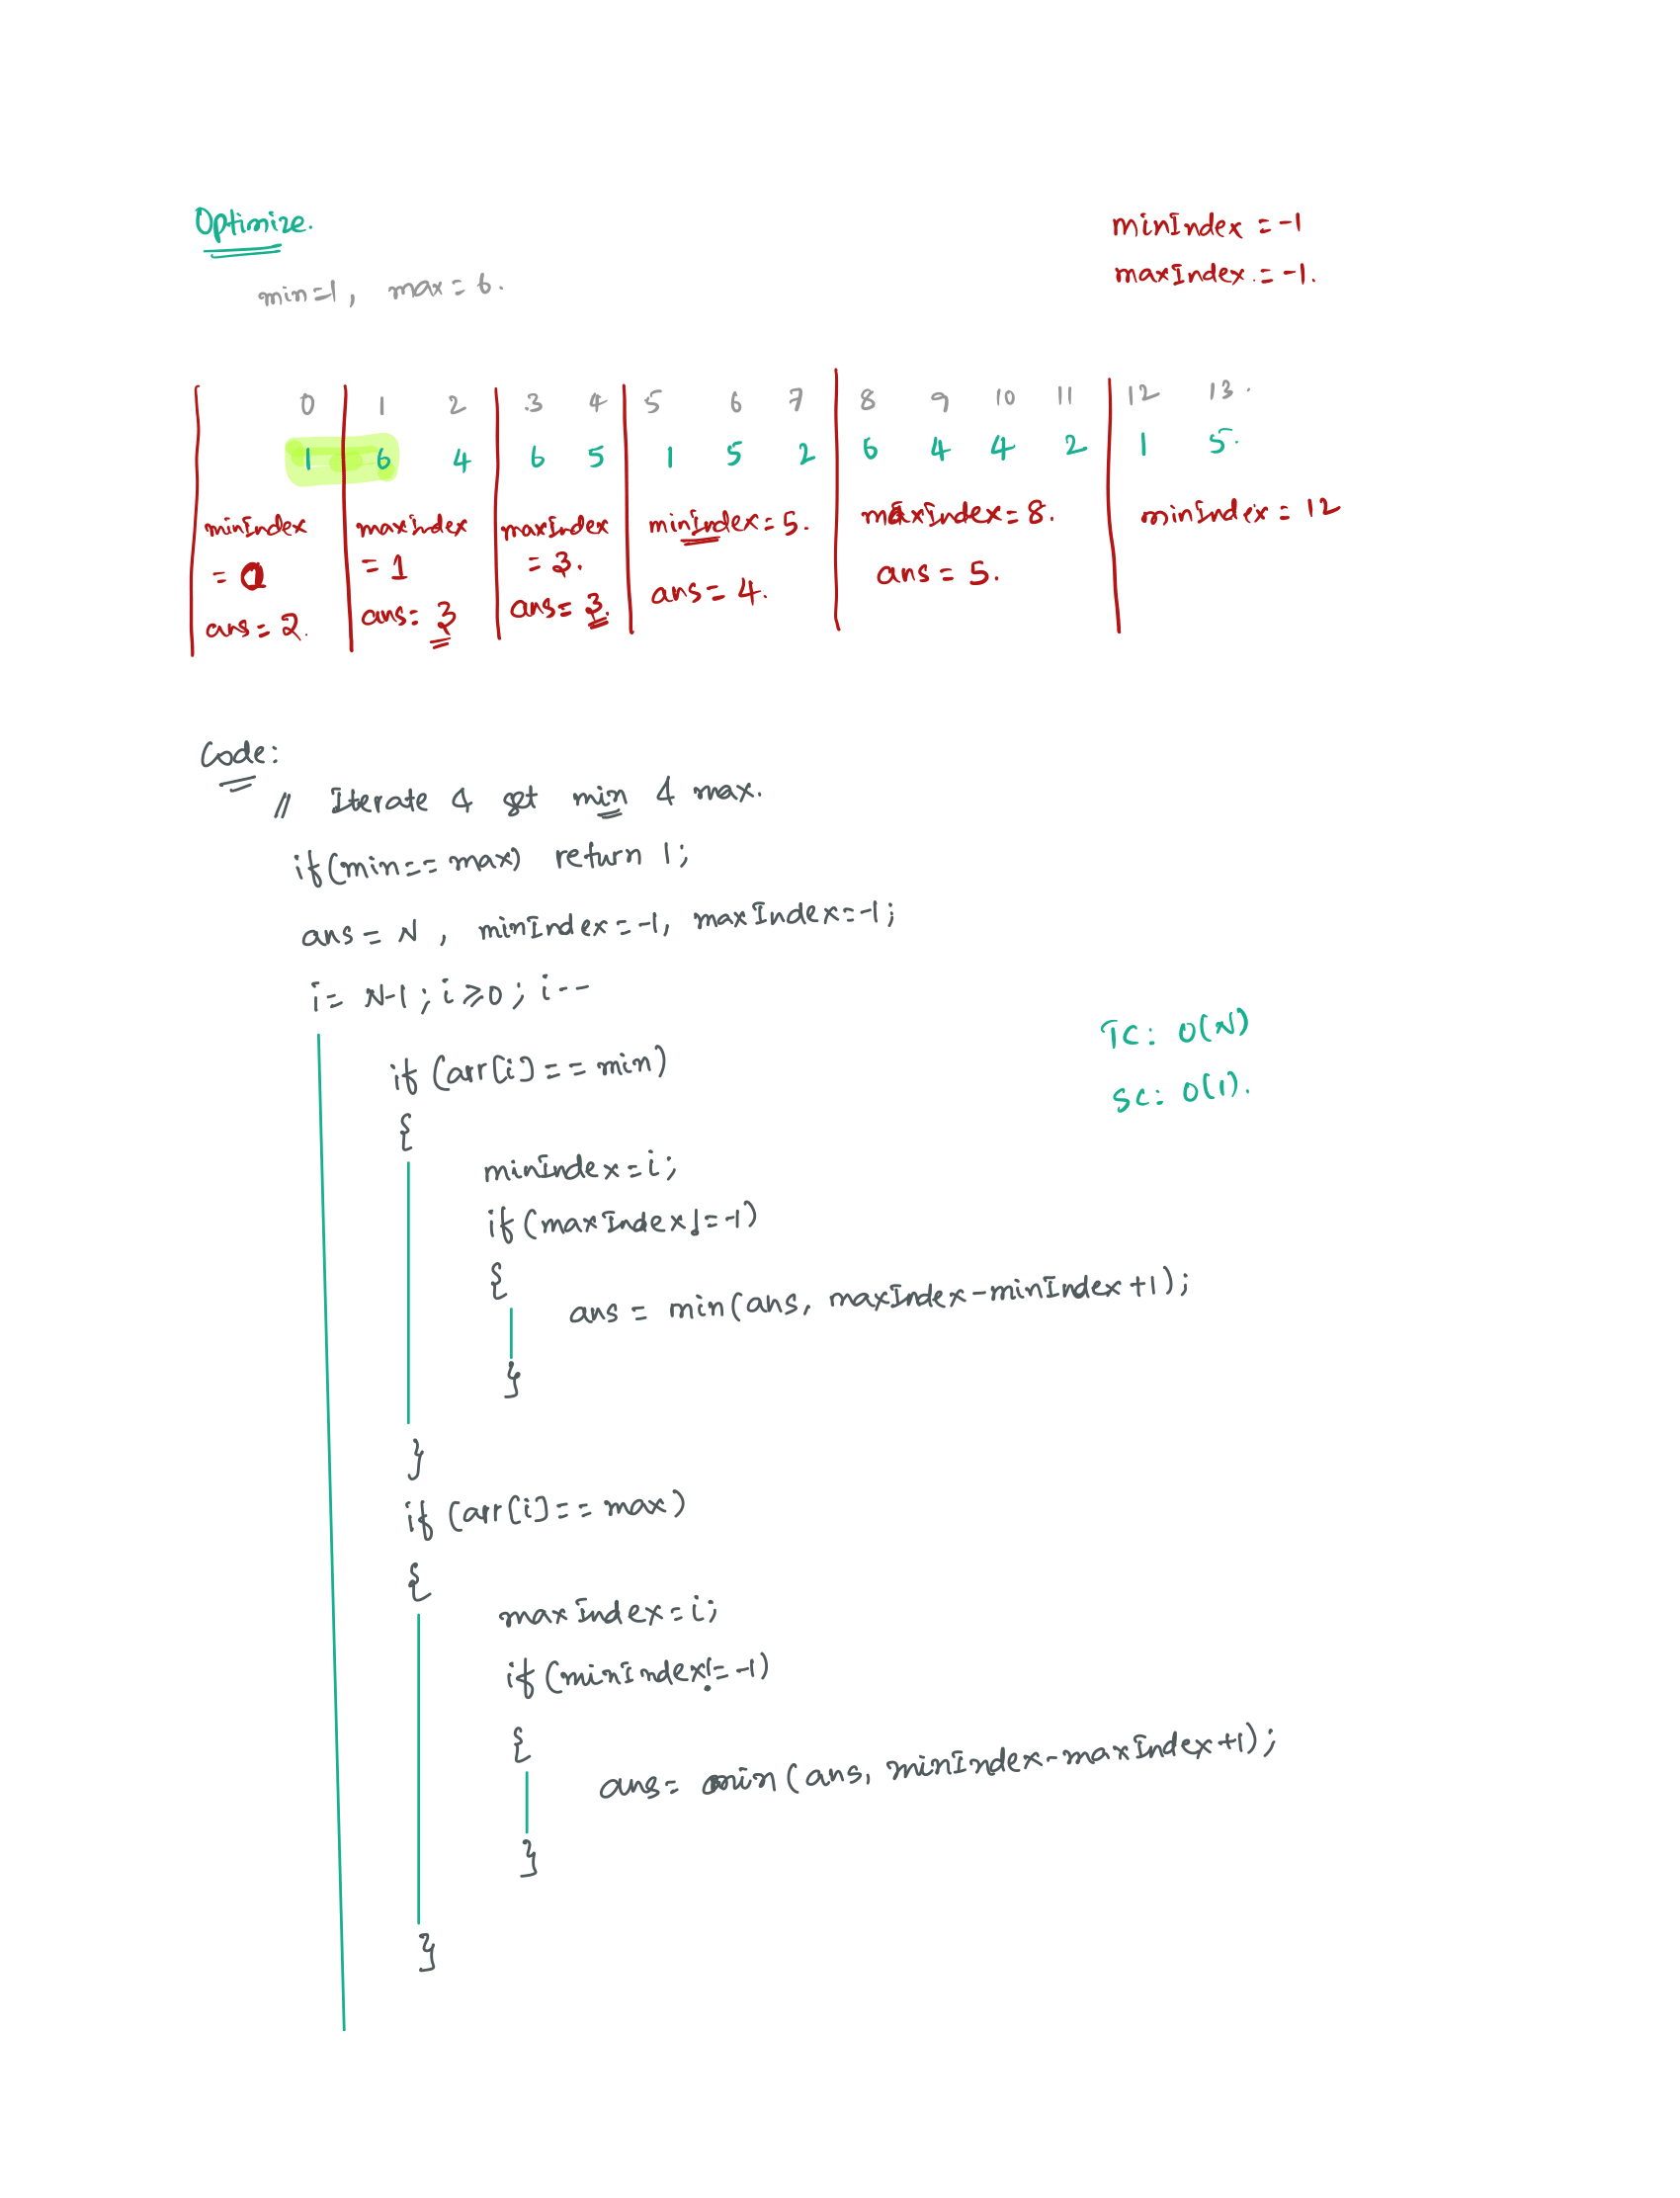 Optimize.
minIndex = -1
min=1, max = 6.
maxIndex = -1.
0 1 2 3 4 5 6 7 8 9 10 11 12 13.
1 6 4 6 5 1 5 2 6 4 4 2 1 5.
minIndex
= 0
ans = 2.
maxIndex
= 1
ans = 3
maxIndex
= 3.
ans = 3.
minIndex = 5.
ans = 4.
maxIndex = 8.
ans = 5.
minIndex = 12
Code:
// Iterate & set min & max.
if(min == max) return 1;
ans = N, minIndex = -1, maxIndex = -1;
i = N-1; i ≥ 0; i--
TC: O(N)
SC: O(1).
if (arr[i] == min)
{
minIndex = i;
if (maxIndex != -1)
{
ans = min(ans, maxIndex - minIndex + 1);
}
}
if (arr[i] == max)
{
maxIndex = i;
if (minIndex != -1)
{
ans = min(ans, minIndex - maxIndex + 1);
}
}